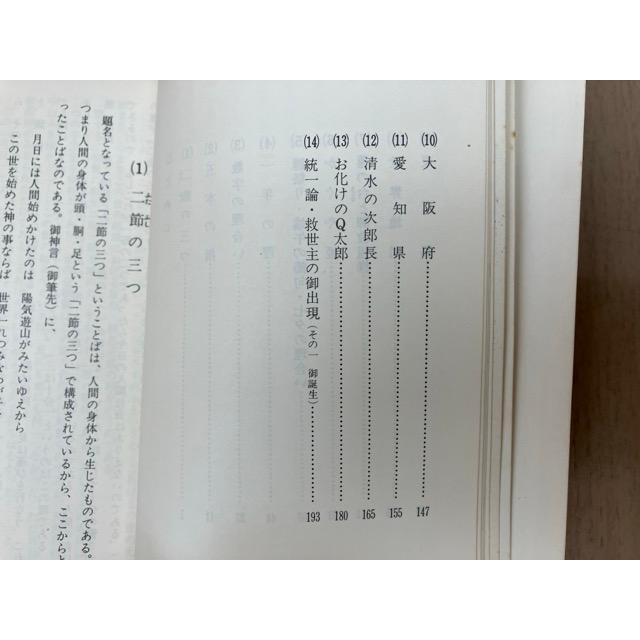 (10) 大阪府……147
(11) 愛知県……155
(12) 清水の次郎長……165
(13) お化けのQ太郎……180
(14) 統一論・救世主の御出現(その一 御誕生)……193
(1) 二節の三つ
題名となっている「二節の三つ」ということばは、人間の身体から生じたものである。
つまり人間の身体が頭・胴・足という「二節の三つ」で構成されているから、ここからと
ったことばなのである。御神言(御筆先)に、
月日には人間始めかけたのは 陽気遊山がみたいゆえから
この世を始めた神の事ならば 世界一れつみな